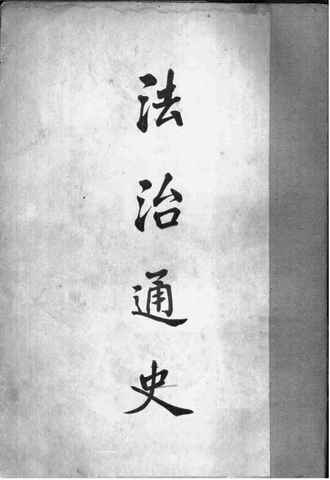 法治通史